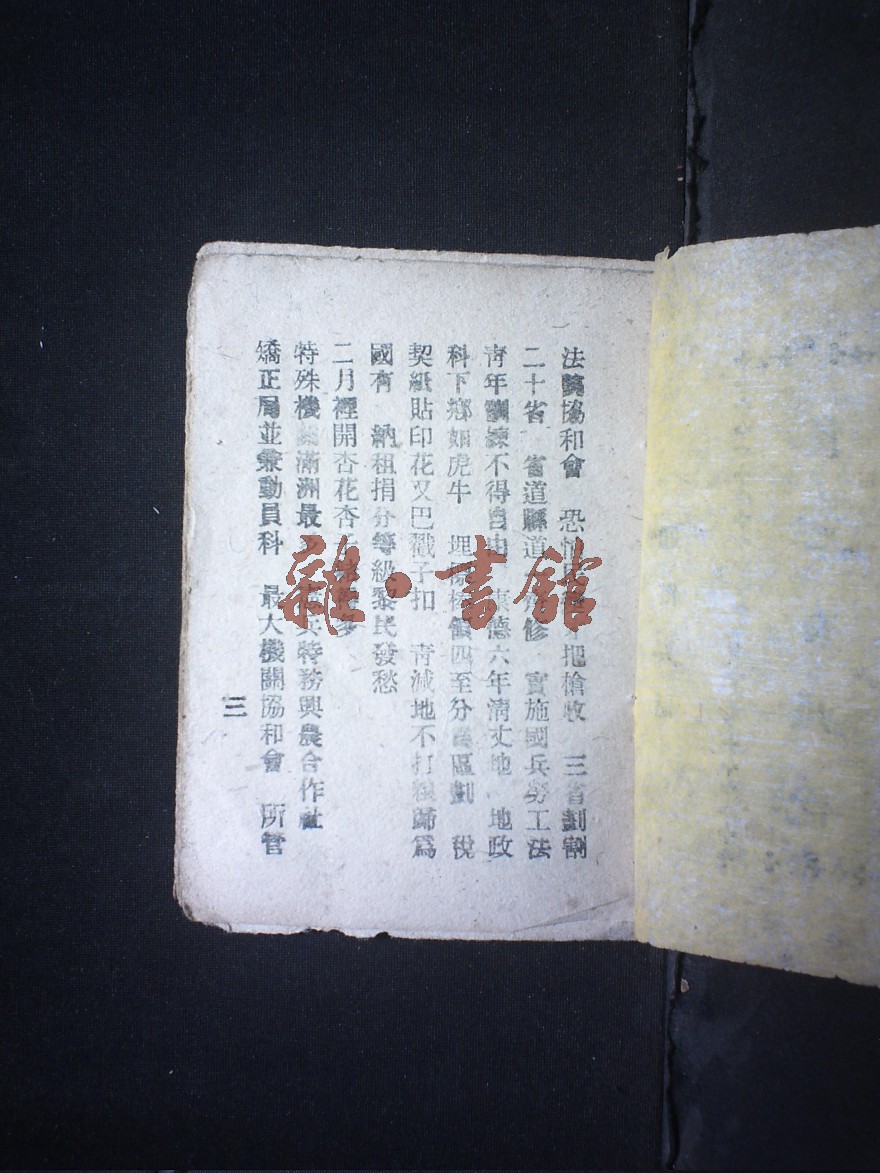 法 協和會 恐 把槍收 三省劃割
二十省 省道縣道 修 實施國兵勞工法
靑年訓練不得自由 德六年淸丈地 地政
科下鄕如虎牛 埋 四至分 區劃 稅
契紙貼印花又巴戳子扣 靑減地不打 歸爲
國有 納租捐分等級黎民發愁
二月裡開杏花杏 多
特殊機 滿洲最多 兵特務興農合作社
矯正局並兼動員科 最大機關協和會 所管
三
雜·書館